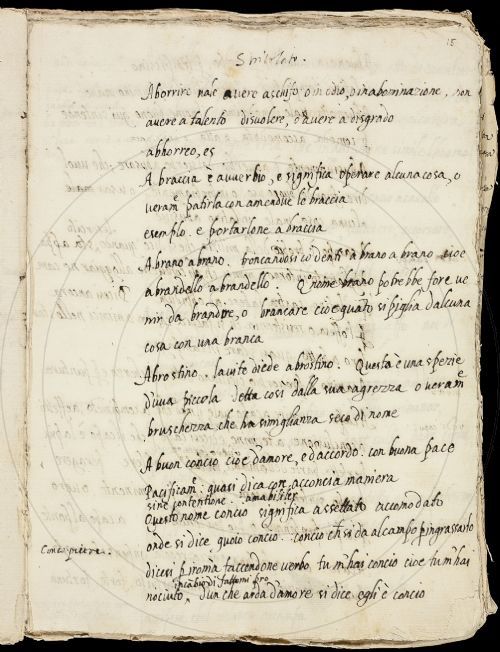 15
Aborrire vale avere a schifo o in odio, o in abominazione, non
avere a talento disvolere, o avere a disgrado
abhorreo, es
A braccia è avverbio, e significa operare alcuna cosa, o
veram.e patirla con amendue le braccia
esemplo. e portarlone a braccia
A brano a brano. troncandosi co denti a brano a brano cioe
a brandello a brandello. Q.o nome brano potrebbe forse ve
nir da brandire, o brancare cioe quãto si piglia d'alcuna
cosa con una branca
Abrostino. la vite diede abrostino. Questa è una spezie
d'uva piccola detta cosi dalla sua agrezza o veram.e
bruschezza che ha simiglianza seco di nome
A buon concio cioe d'amore, e d'accordo. con buona pace
Pacificam.e quasi dica con acconcia maniera
sine contentione. amabiliter
Questo nome concio significa assettato accomodato
onde si dice quoio concio. concio ch si da al campo p ingrassarlo
Conce pietre.
dicesi p ironia faccendone verbo tu m'hai concio cioe tu m'hai
incãbio di
nociuto. d'un che arda d'amore si dice egli è concio